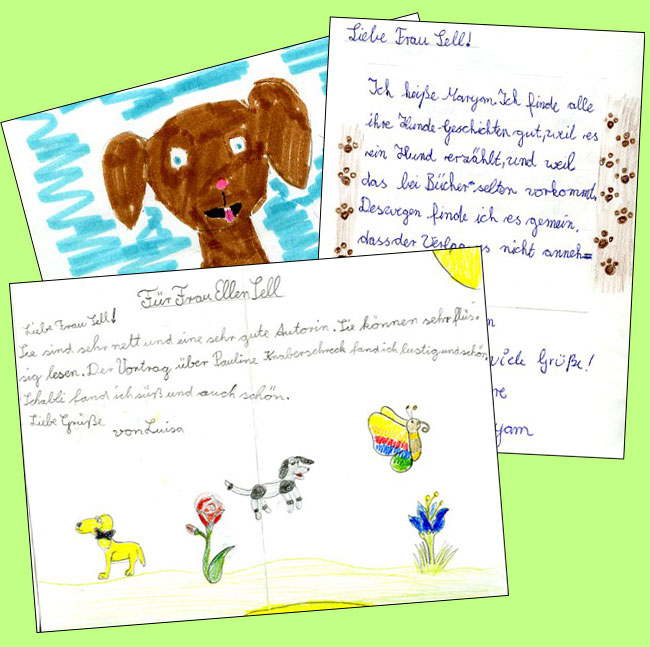 Liebe Frau Sell!
Ich heiße Maryam. Ich finde alle
ihre Hunde-Geschichten gut, weil es
ein Hund erzählt, und weil
das bei Bücher selten vorkommt.
Deswegen finde ich es gemein,
dass der nicht anneh=
viele Grüße!
Für Frau Ellen Sell
Liebe Frau Sell!
Sie sind sehr nett und eine sehr gute Autorin. Sie können sehr flüs-
sig lesen. Der Vortrag über Pauline Knaberschreck fand ich lustig und schön.
Schabli fand ich süß und auch schön.
Liebe Grüße
von Luisa